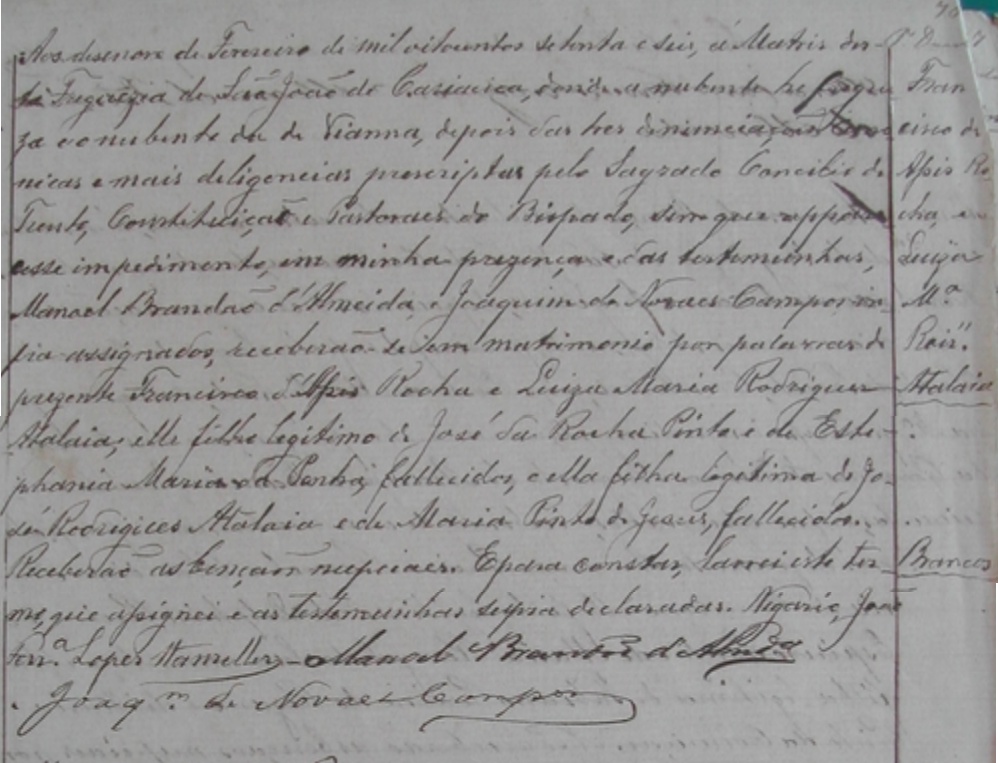 Aos desenove de Fevereiro de mil oitocentos setenta e seis, á Matris des-
ta Freguezia de São João de Cariacica, donde a nubente he fregue
za e o nubente da de Vianna, depois das tres denunciações cano
nicas e mais deligencias prescriptas pelo Sagrado Concilio de
Trento, Constituição e Pastoraes do Bispado, sem que appare
cesse impedimento, em minha prezença e das testemunhas,
Manoel Brandaõ d'Almeida e Joaquim de Novaes Campos in-
fra assignados, receberaõ-se em matrimonio por palavras de
prezente Francisco d'Assis Rocha e Luiza Maria Rodrigues
Atalaia, elle filho legitimo de José da Rocha Pinto e de Este-
phania Maria da Penha, fallecidos, e ella filha legitima de Jo-
sé Rodrigues Atalaia e de Maria Pinto de Jesus, fallecidos.
Receberaõ as bençam nupciaes. E para constar, lavrei este ter-
mo, que assignei e as testemunhas supra declaradas. Vigario, João
Ferrª Lopes Manoel Brandaõ d'Almdª
Joaqm de Novaes Campos
70
Fran
cisco de
Assis Ro
cha, e
Luiza
Mª
Roiz"
Atalaia
Brancos